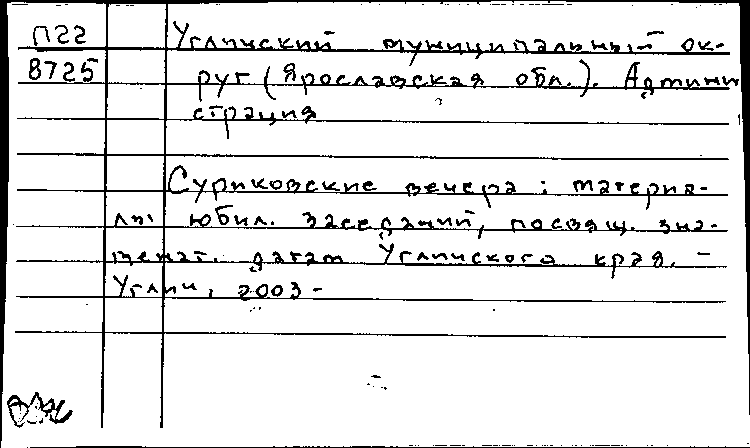 П22
8725
Угличский муниципальный ок-
руг (Ярославская обл.). Админи
страция
Суриковские вечера : материа-
лы юбил. заседаний, посвящ. зна-
менат. датам Угличского края. –
Углич, 2003 –